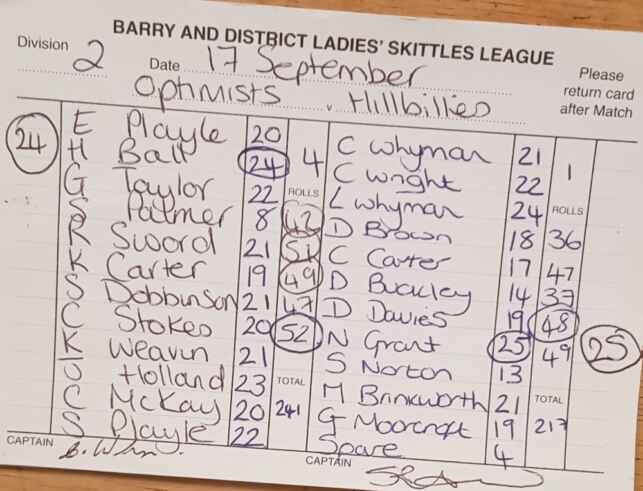 BARRY AND DISTRICT LADIES' SKITTLES LEAGUE
Division 2 Date 17 September
Please return card after Match
Optimists v Hillbillies
24
E Playle 20
H Ball 24
G Taylor 22
S Palmer 8
R Sword 21
K Carter 19
S Dobbinson 21
C Stokes 20
K Weavin 21
J Holland 23
C McKay 20
S Playle 22
4
ROLLS
42
51
49
47
52
TOTAL
241
C Whyman 21
C Wright 22
L Whyman 24
D Brown 18
C Carter 17
D Buckley 14
D Davies 19
N Grant 25
S Norton 13
M Brinkworth 21
G Moorcroft 19
Spare 4
1
ROLLS
36
47
37
48
49
TOTAL
217
25
CAPTAIN
CAPTAIN